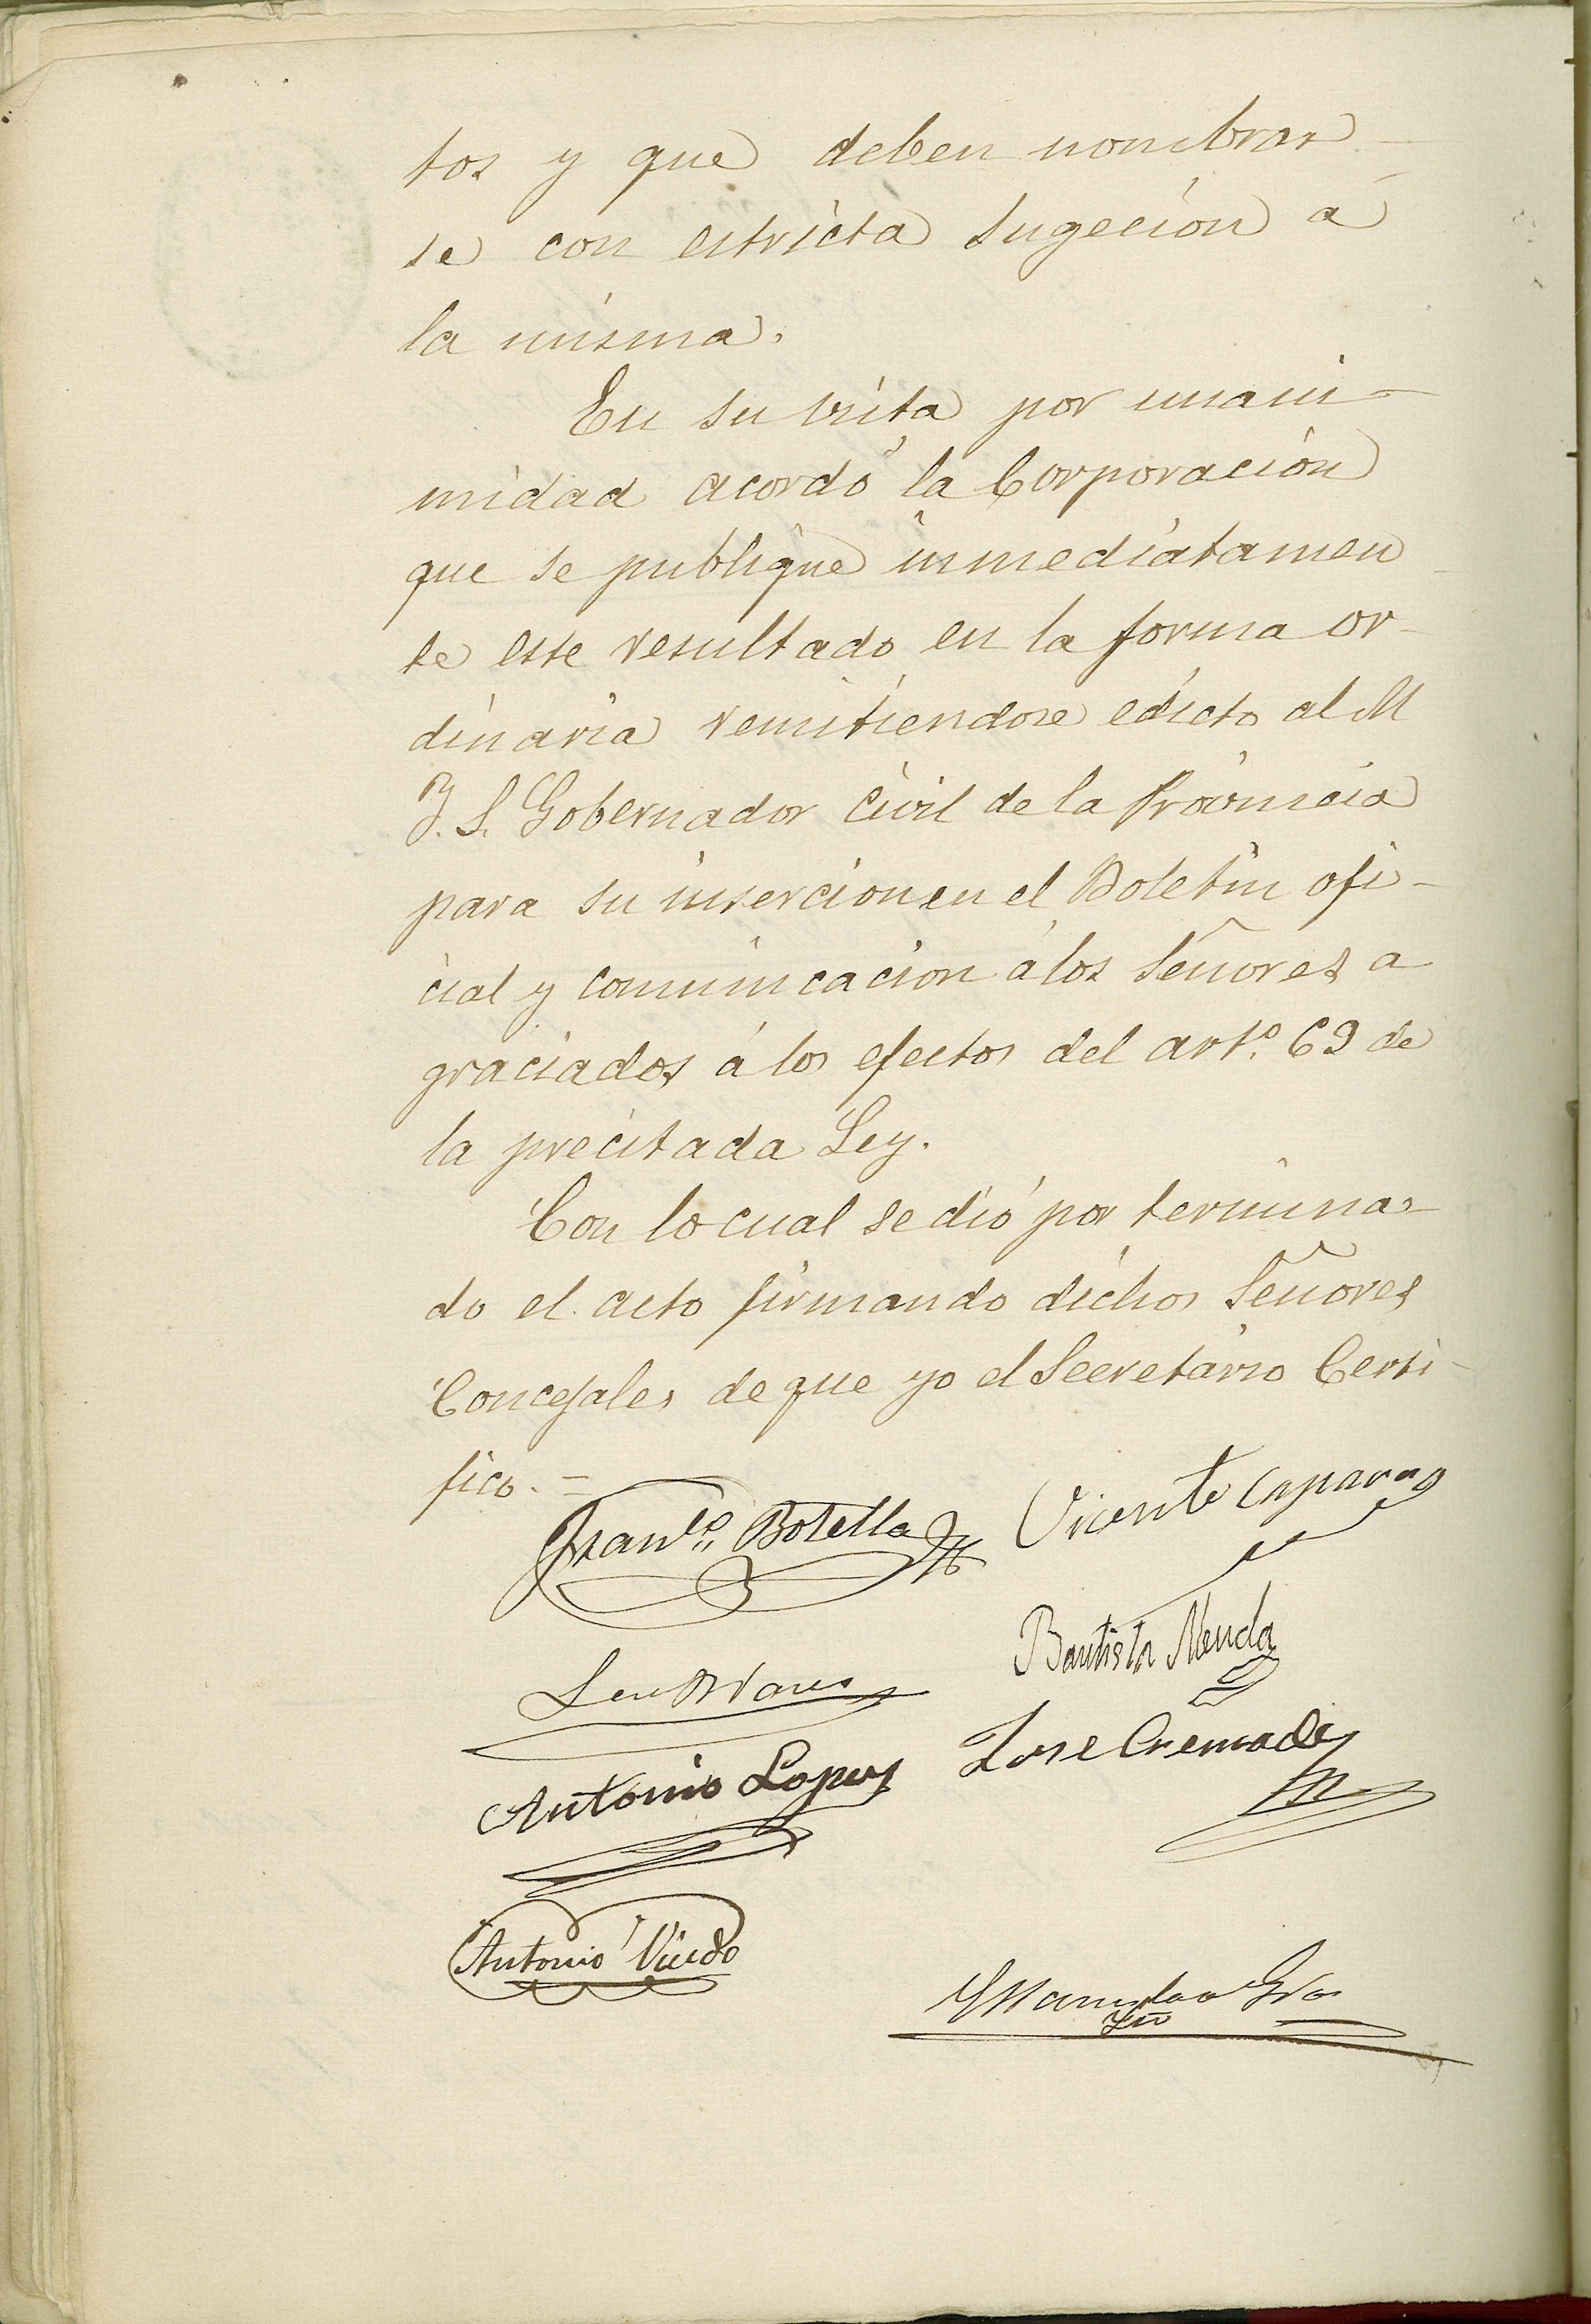 tos y que deben nombrar
se con estricta sugecion á
la misma.
En su vista por unani-
midad acordó la Corporación
que se publique inmediatamen
te este resultado en la forma or-
dinaria remitiendose edicto al M
Y. S. Gobernador Civil de la Provincia
para su insercion en el Boletin ofi-
cial y comunicacion á los Señores a
graciados á los efectos del artº. 69 de
la precitada Ley.
Con lo cual se dió por termina-
do el acto firmando dichos Señores
Concejales de que yo el Secretario Certi-
fico. =
Franco. Botella Vicente Caparros
Bautista
Antonio Lopez Jose Cremades
Antonio